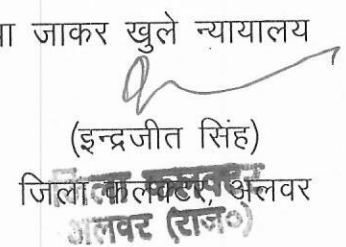 जाकर खुले न्यायालय
(इन्द्रजीत सिंह)
जिला कलक्टर, अलवर
अलवर (राज०)